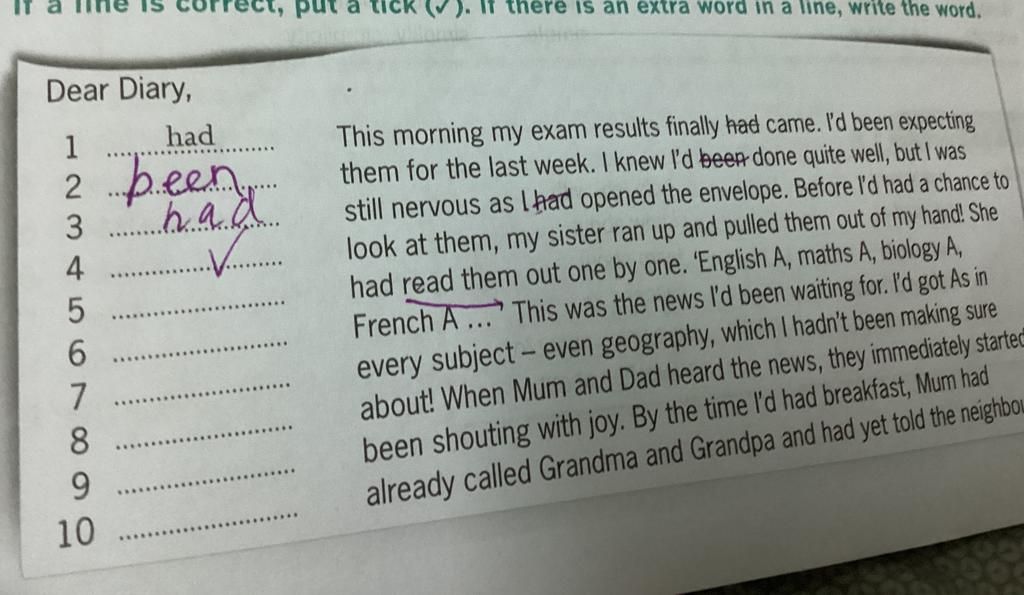 If a line is correct, put a tick (✓). If there is an extra word in a line, write the word.
Dear Diary,
1 had This morning my exam results finally had came. I'd been expecting
2 been them for the last week. I knew I'd been done quite well, but I was
3 had still nervous as I had opened the envelope. Before I'd had a chance to
4 ✓ look at them, my sister ran up and pulled them out of my hand! She
5 had read them out one by one. 'English A, maths A, biology A,
6 French A ...' This was the news I'd been waiting for. I'd got As in
7 every subject – even geography, which I hadn't been making sure
8 about! When Mum and Dad heard the news, they immediately started
9 been shouting with joy. By the time I'd had breakfast, Mum had
10 already called Grandma and Grandpa and had yet told the neighbou